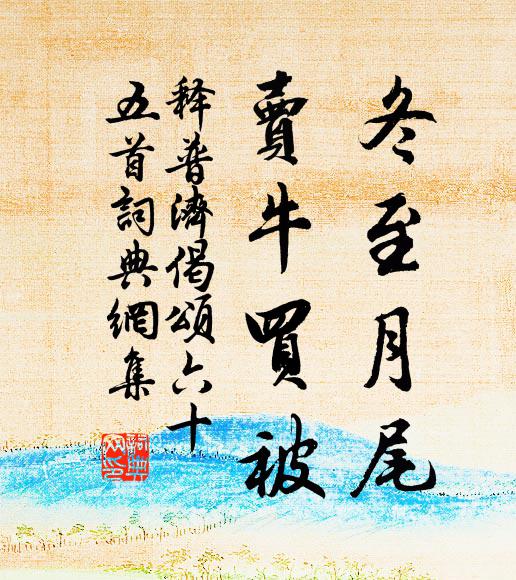 冬至月尾
賣牛買被
释普濟偈頌六十
五首詞典網集